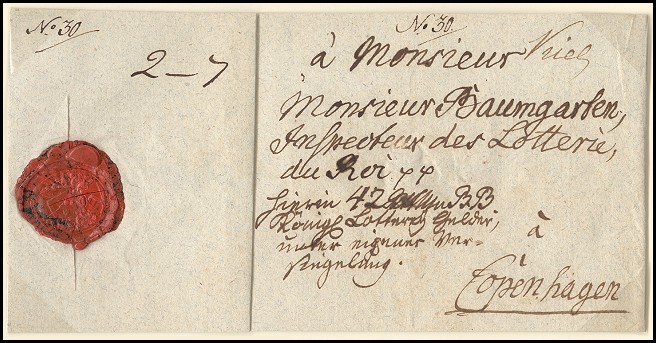 No 30
2 – 7
No 30.
à Monsieur
Monsieur Baumgarten,
Inspecteur des Lotterie,
du Roi pp
hierin 42 BB
Königl Lotterey Gelder,
unter eigener Ver-
siegelung.
à
Copenhagen